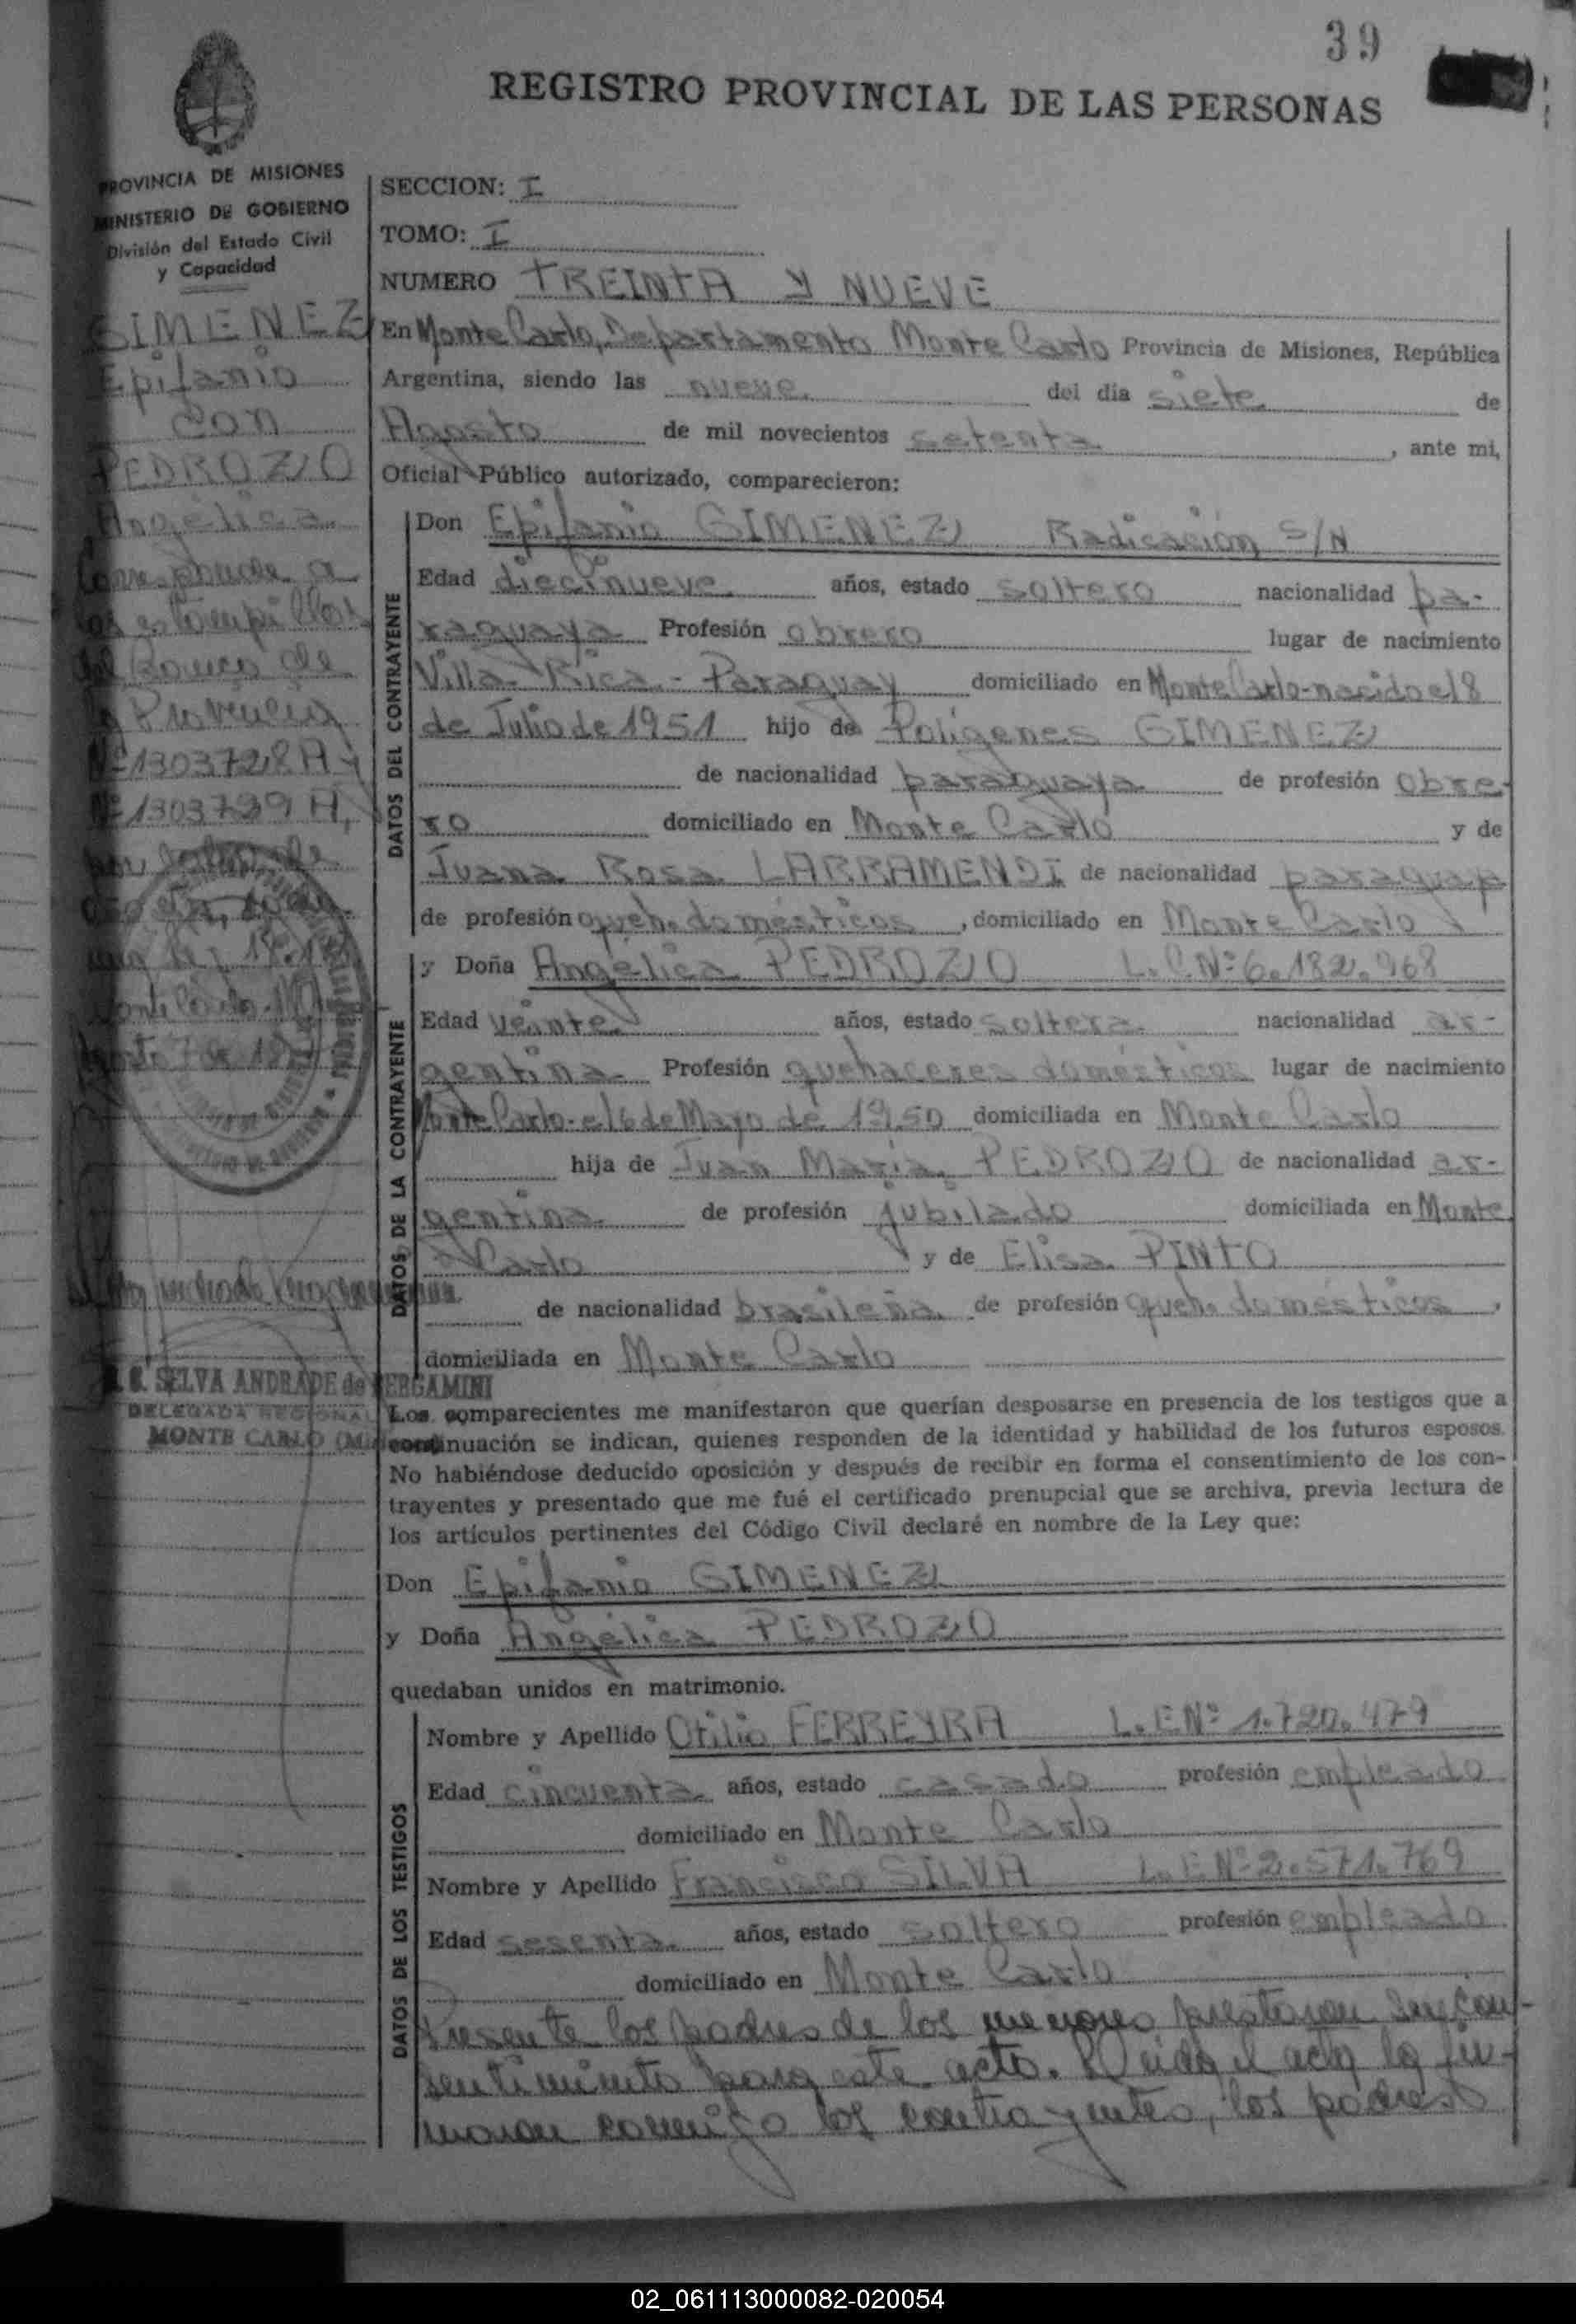 39
REGISTRO PROVINCIAL DE LAS PERSONAS
PROVINCIA DE MISIONES
MINISTERIO DE GOBIERNO
División del Estado Civil
y Capacidad
GIMENEZ
Epifanio
con
PEDROZO
Angélica
Corresponde a
las estampillas
del Banco de
la Provincia
Nº 1303728 A y
Nº 1303729 A,
por
Monte Carlo
Agosto 7 de
S. SELVA ANDRADE de BERGAMINI
DELEGADA REGIONAL
MONTE CARLO
SECCION: I
TOMO: I
NUMERO TREINTA Y NUEVE
En Monte Carlo, Departamento Monte Carlo Provincia de Misiones, República
Argentina, siendo las nueve del día siete de
Agosto de mil novecientos setenta, ante mi,
Oficial Público autorizado, comparecieron:
DATOS DEL CONTRAYENTE
Don Epifanio GIMENEZ Radicación S/N
Edad diecinueve años, estado soltero nacionalidad pa-
raguaya Profesión obrero lugar de nacimiento
Villa Rica - Paraguay domiciliado en Monte Carlo-nacido el 8
de Julio de 1951 hijo de Polígenes GIMENEZ
de nacionalidad paraguaya de profesión obre-
ro domiciliado en Monte Carlo y de
Juana Rosa LARRAMENDI de nacionalidad
de profesión queh. domésticos, domiciliado en Monte Carlo
DATOS DE LA CONTRAYENTE
y Doña Angélica PEDROZO L.C.Nº 6.182.968
Edad veinte años, estado soltera nacionalidad ar-
gentina Profesión quehaceres domésticos lugar de nacimiento
Monte Carlo-el 6 de Mayo de 1950 domiciliada en Monte Carlo
hija de Juan María PEDROZO de nacionalidad ar-
gentina de profesión jubilado domiciliada en Monte
Carlo y de Elisa PINTO
de nacionalidad brasileña de profesión queh. domésticos,
domiciliada en Monte Carlo
Los comparecientes me manifestaron que querían desposarse en presencia de los testigos que a
continuación se indican, quienes responden de la identidad y habilidad de los futuros esposos.
No habiéndose deducido oposición y después de recibir en forma el consentimiento de los con-
trayentes y presentado que me fué el certificado prenupcial que se archiva, previa lectura de
los artículos pertinentes del Código Civil declaré en nombre de la Ley que:
Don Epifanio GIMENEZ
y Doña Angélica PEDROZO
quedaban unidos en matrimonio.
DATOS DE LOS TESTIGOS
Nombre y Apellido Otilio FERREYRA L.E.Nº 1.720.479
Edad cincuenta años, estado casado profesión empleado
domiciliado en Monte Carlo
Nombre y Apellido Francisco SILVA L.E.Nº 2.571.769
Edad sesenta años, estado soltero profesión empleado
domiciliado en Monte Carlo
Presente los padres de los menores prestaron su con-
sentimiento para este acto. Leida el acta la fir-
maron conmigo los contrayentes, los padres
02_061113000082-020054